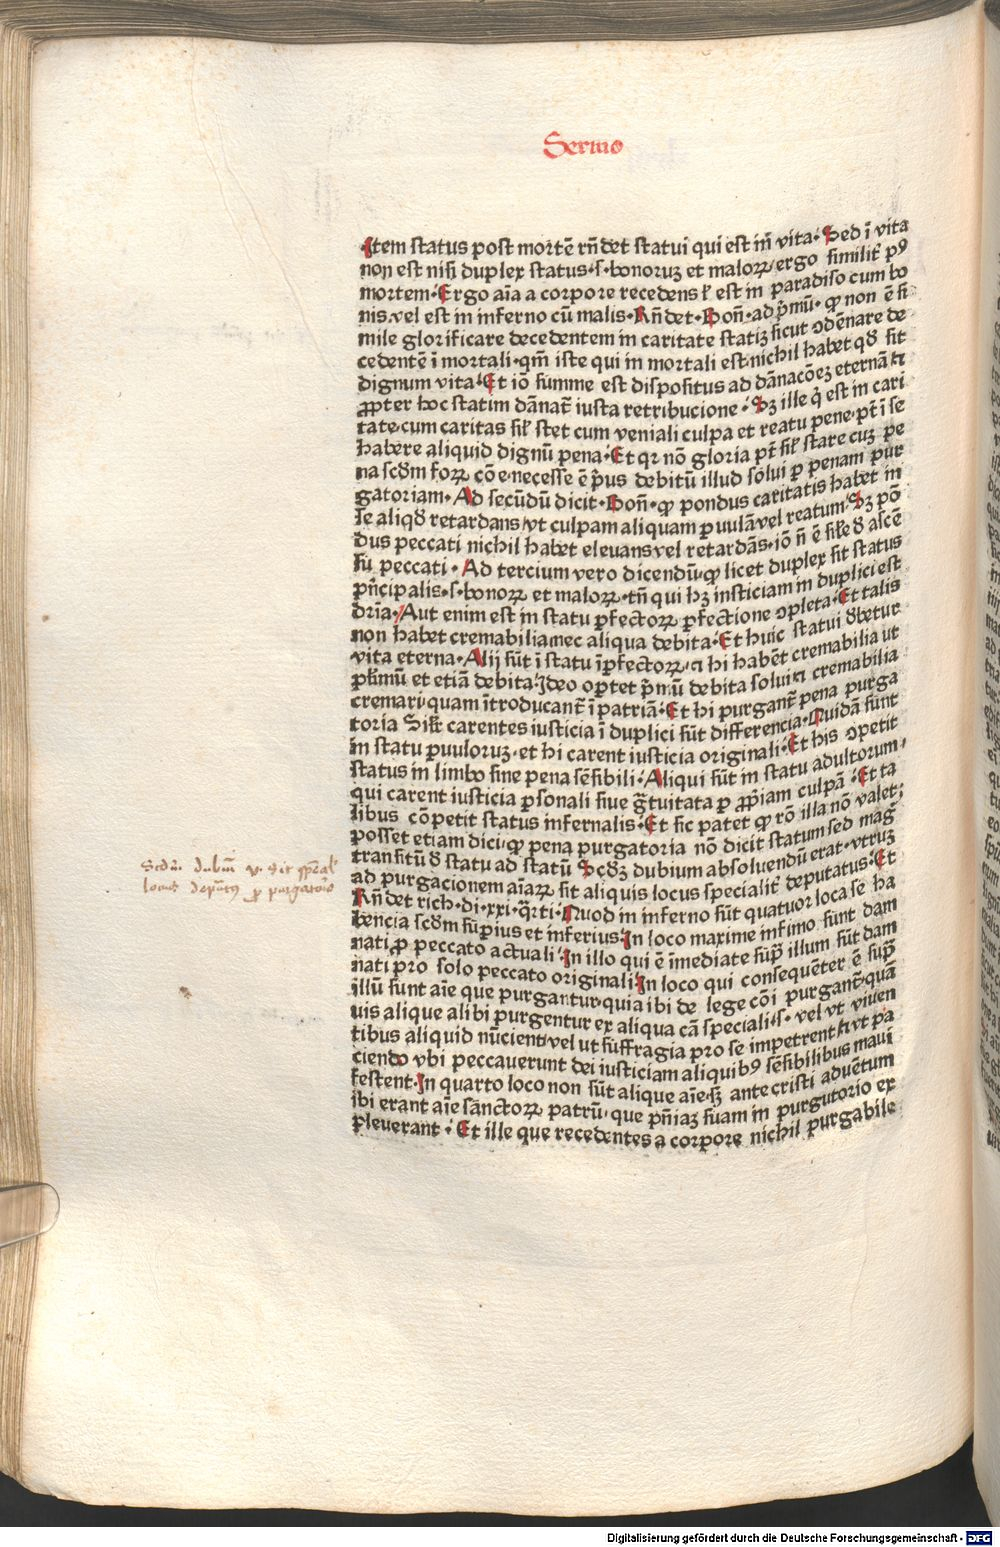 Sermo
Item status post mortē rn̄det statui qui est in̄ vita. Sed ī vita
non est nisi duplex status .s. bonoruz et maloꝝ ergo similit᷑ pꝰ
mortem. Ergo aīa a corpore recedens ł est in paradiso cum bo
nis vel est in inferno cū malis. Rn̄det. Bon̄. ad p̄mū. ꝙ non ē si
mile glorificare decedentem in caritate statiꝫ sicut ꝯdēnare de
cedentē ī mortali. qm̄ iste qui in mortali est nichil habet qd̓ sit
dignum vita. Et iō summe est dispositus ad dānacōeꝫ eternā ⁊
ꝓpter hoc statim dānat᷑ iusta retribucione. Sꝫ ille q̇ est in cari
tate. cum caritas sił stet cum veniali culpa et reatu pene. pt̄ ī se
habere aliquid dignū pena. Et qꝛ nō gloria pt̄ sił stare cuꝫ pe
na scd̄m foꝝ cōe. necesse ē p̄us debitū illud solui ꝑ penam pur
gatoriam. Ad secūdū dicit. Bon̄. ꝙ pondus caritatis habet in
se aliqd̓ retardans / vt culpam aliquam ꝑuulā vel reatum. Sꝫ pō
dus peccati nichil habet eleuans vel retardās. iō n̄ ē siłe d̓ ascē
su peccati. Ad tercium vero dicendū. ꝙ licet duplex sit status
pn̄cipalis .s. bonoꝝ et maloꝝ. tn̄ qui hꝫ iusticiam in duplici est
dr̄ia. Aut enim est in statu ꝑfectoꝝ ꝑfectione ꝯpleta. Et talis
non habet cremabilia. nec aliqua debita. Et huic statui d̓betur
vita eterna. Alij sūt ī statu īꝑfectoꝝ. ⁊ hi habēt cremabilia ut
plimū et etiā debita. Ideo oꝑtet p̄mū debita solui ⁊ cremabilia
cremari. quam ītroducant᷑ ī patriā. Et hi purgant᷑ pena purga
toria Silr carentes iusticia ī duplici sūt differencia. Quidā sunt
in statu ꝑuuloruꝫ. et hi carent iusticia originali. Et his ꝯpetit
status in limbo sine pena sēsibili. Aliqui sūt in statu adultorum.
qui carent iusticia ꝑsonali siue gr̄tuitata ꝑ ꝓpiam culpā. Et ta
libus cōpetit status infernalis. Et sic patet ꝙ rō illa nō valet;
posset etiam dici. ꝙ pena purgatoria nō dicit statum sed maḡ
transitū d̓ statu ad statū Scd̓ꝫ dubium absoluendū erat. vtruꝫ
ad purgacionem aīaꝝ sit aliquis locus specialit᷑ deputatus. Et
Rn̄det rich. di. xxi. q̄rti. Quod in inferno sūt quatuor loca se ha
bencia scd̄m suꝑius et inferius. In loco maxime infimo sunt dam
nati ꝓ peccato actuali. In illo qui ē īmediate sup̄ illum sūt dam
nati pro solo peccato originali. In loco qui consequēter ē sup̄
illū sunt aīe que purgantur. quia ibi de lege cōi purgant᷑. quā
uis alique alibi purgentur ex aliqua cā speciali .s. vel vt viuen
tibus aliquid nūcient. vel ut suffragia pro se impetrent. ⁊ vt pa
ciendo vbi peccauerunt dei iusticiam aliquibꝰ sēsibilibus maui
festent. In quarto loco non sūt alique aīe. sꝫ ante cristi aduētum
ibi erant aīe sānctoꝝ patrū. que pn̄iaꝫ suam in purgutorio ex
ꝑleuerant. Et ille que recedentes a corpore nichil purgabile
Scd̄m dubiū v̄ sit spēcal᷑
locus deputꝰ ꝓ purgatorio
Digitalisierung gefördert durch die Deutsche Forschungsgemeinschaft - DFG